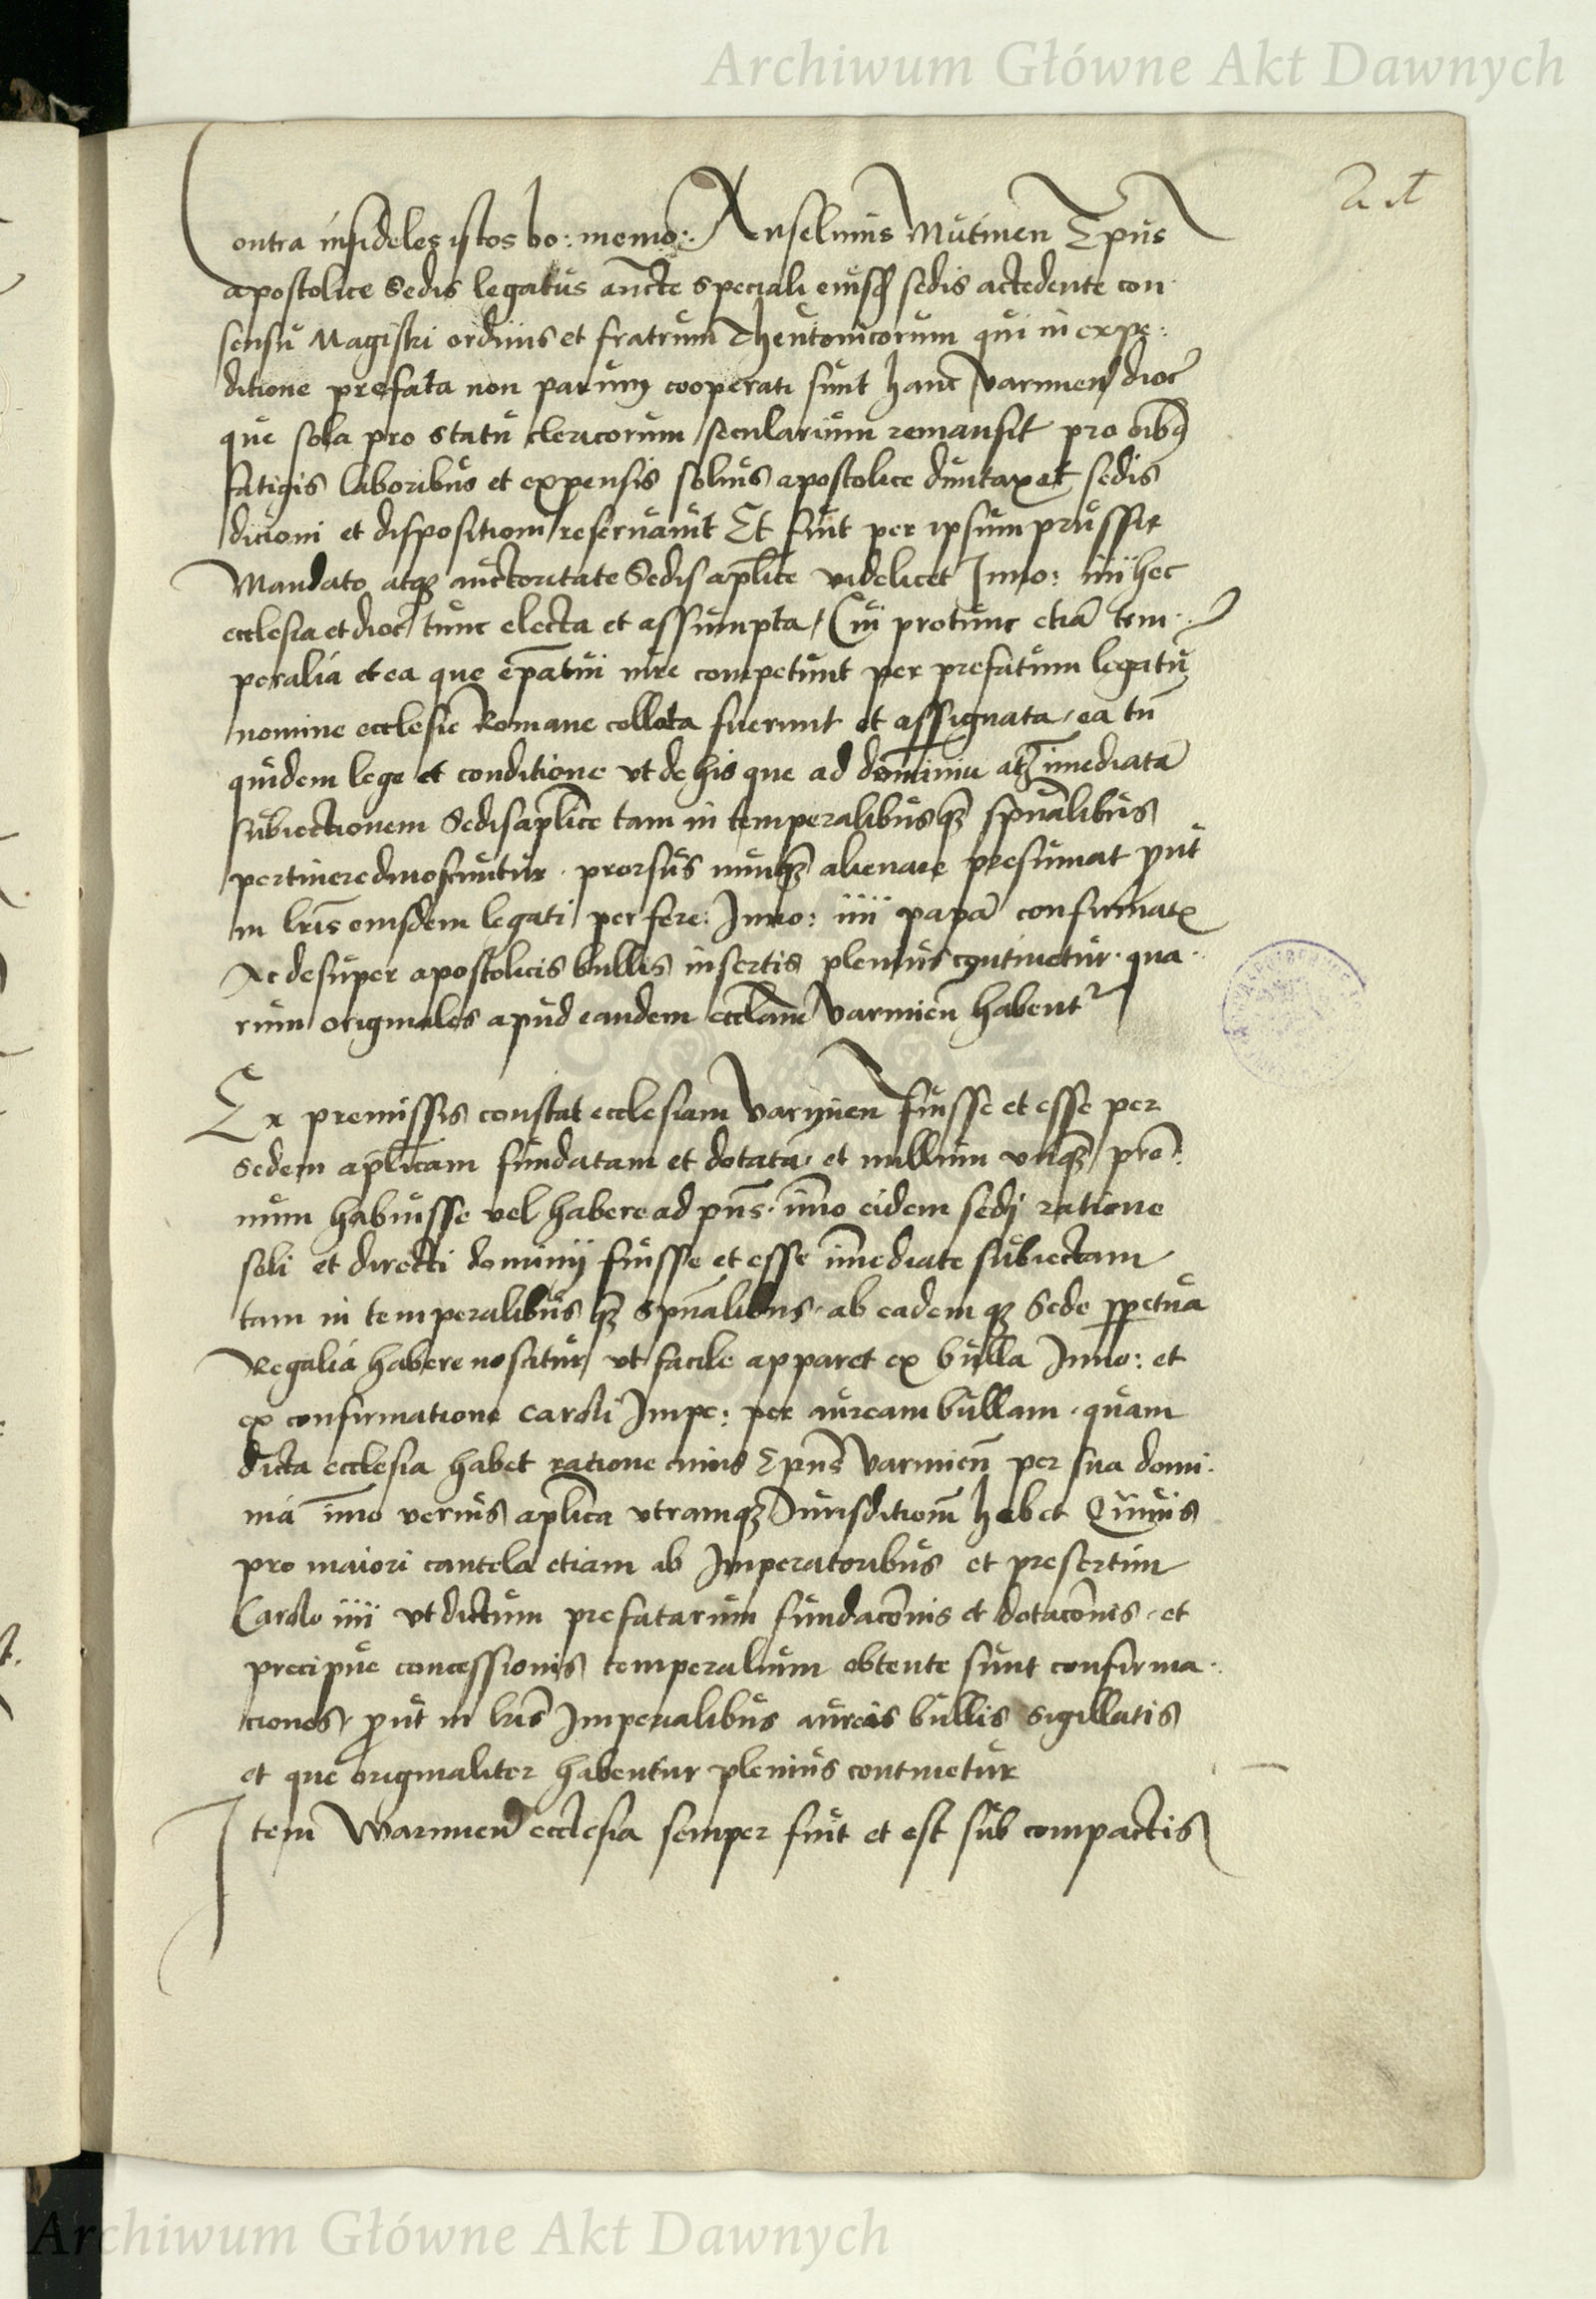 Archiwum Główne Akt Dawnych
Contra infideles istos bo: memo: Anselmus Mutinen Epus
apostolice Sedis legatus aucte speciali eiusq sedis accedente con
sensu Magistri ordinis et fratrum Theutonicorum qui in expe:
ditione prefata non parum cooperati sunt hanc Varmien dioc
que sola pro statu clericorum secularium remansit pro oibq
fatigis laboribus et expensis solius apostolice duntaxat sedis
dicioni et dispositioni reservavit Et fuit per ipsum prussie
Mandato atqz auctoritate Sedis aplice videlicet Inno: iiii hec
ecclesia et dioc tunc electa et assumpta / Cui protunc etia tem
poralia et ea que epatui iure competunt per prefatum legatu
nomine ecclesie Romane collata fuerunt et assignata, ea tn
quidem lege et conditione ut de his que ad dominiu atqz imediata
subiectionem Sedis aplice tam in temporalibus qz spualibus
pertinere dinoscuntur . prorsus nunqz alienare presumat put
in lris eiusdem legati per fere: Inno: iiii papa confirmat
Ac desuper apostolicis bullis insertis plenius continetur . qua
rum originales apud eandem ecclam Varmien habent
Ex premissis constat ecclesiam Varmien fuisse et esse per
sedem aplicam fundatam et dotata, et nullum unqz pro
num habuisse vel habere ad pns . imo eidem sedi ratione
soli et directi dominij fuisse et esse imediate subiectam
tam in temporalibus qz spualibus, ab eademqz Sede ppetua
Regalia habere noscitur, ut facile apparet ex bulla Inno: et
ex confirmatione Caroli Impe: per auream bullam . quam
dicta ecclesia habet ratione cuius Epus Varmien per sua domi
nia imo verius aplica utramqz Iurisditiom habet Quius
pro maiori cautela etiam ab Imperatoribus et presertim
Carolo iiii ut dictum prefatarum fundaconis et dotaconis, et
precipue concessionis temporalium obtente sunt confirma
ciones, put in lris Imperialibus aureis bullis sigillatis
et que originaliter habentur plenius continetur
Item Warmien ecclesia semper fuit et est sub compactis
Archiwum Główne Akt Dawnych